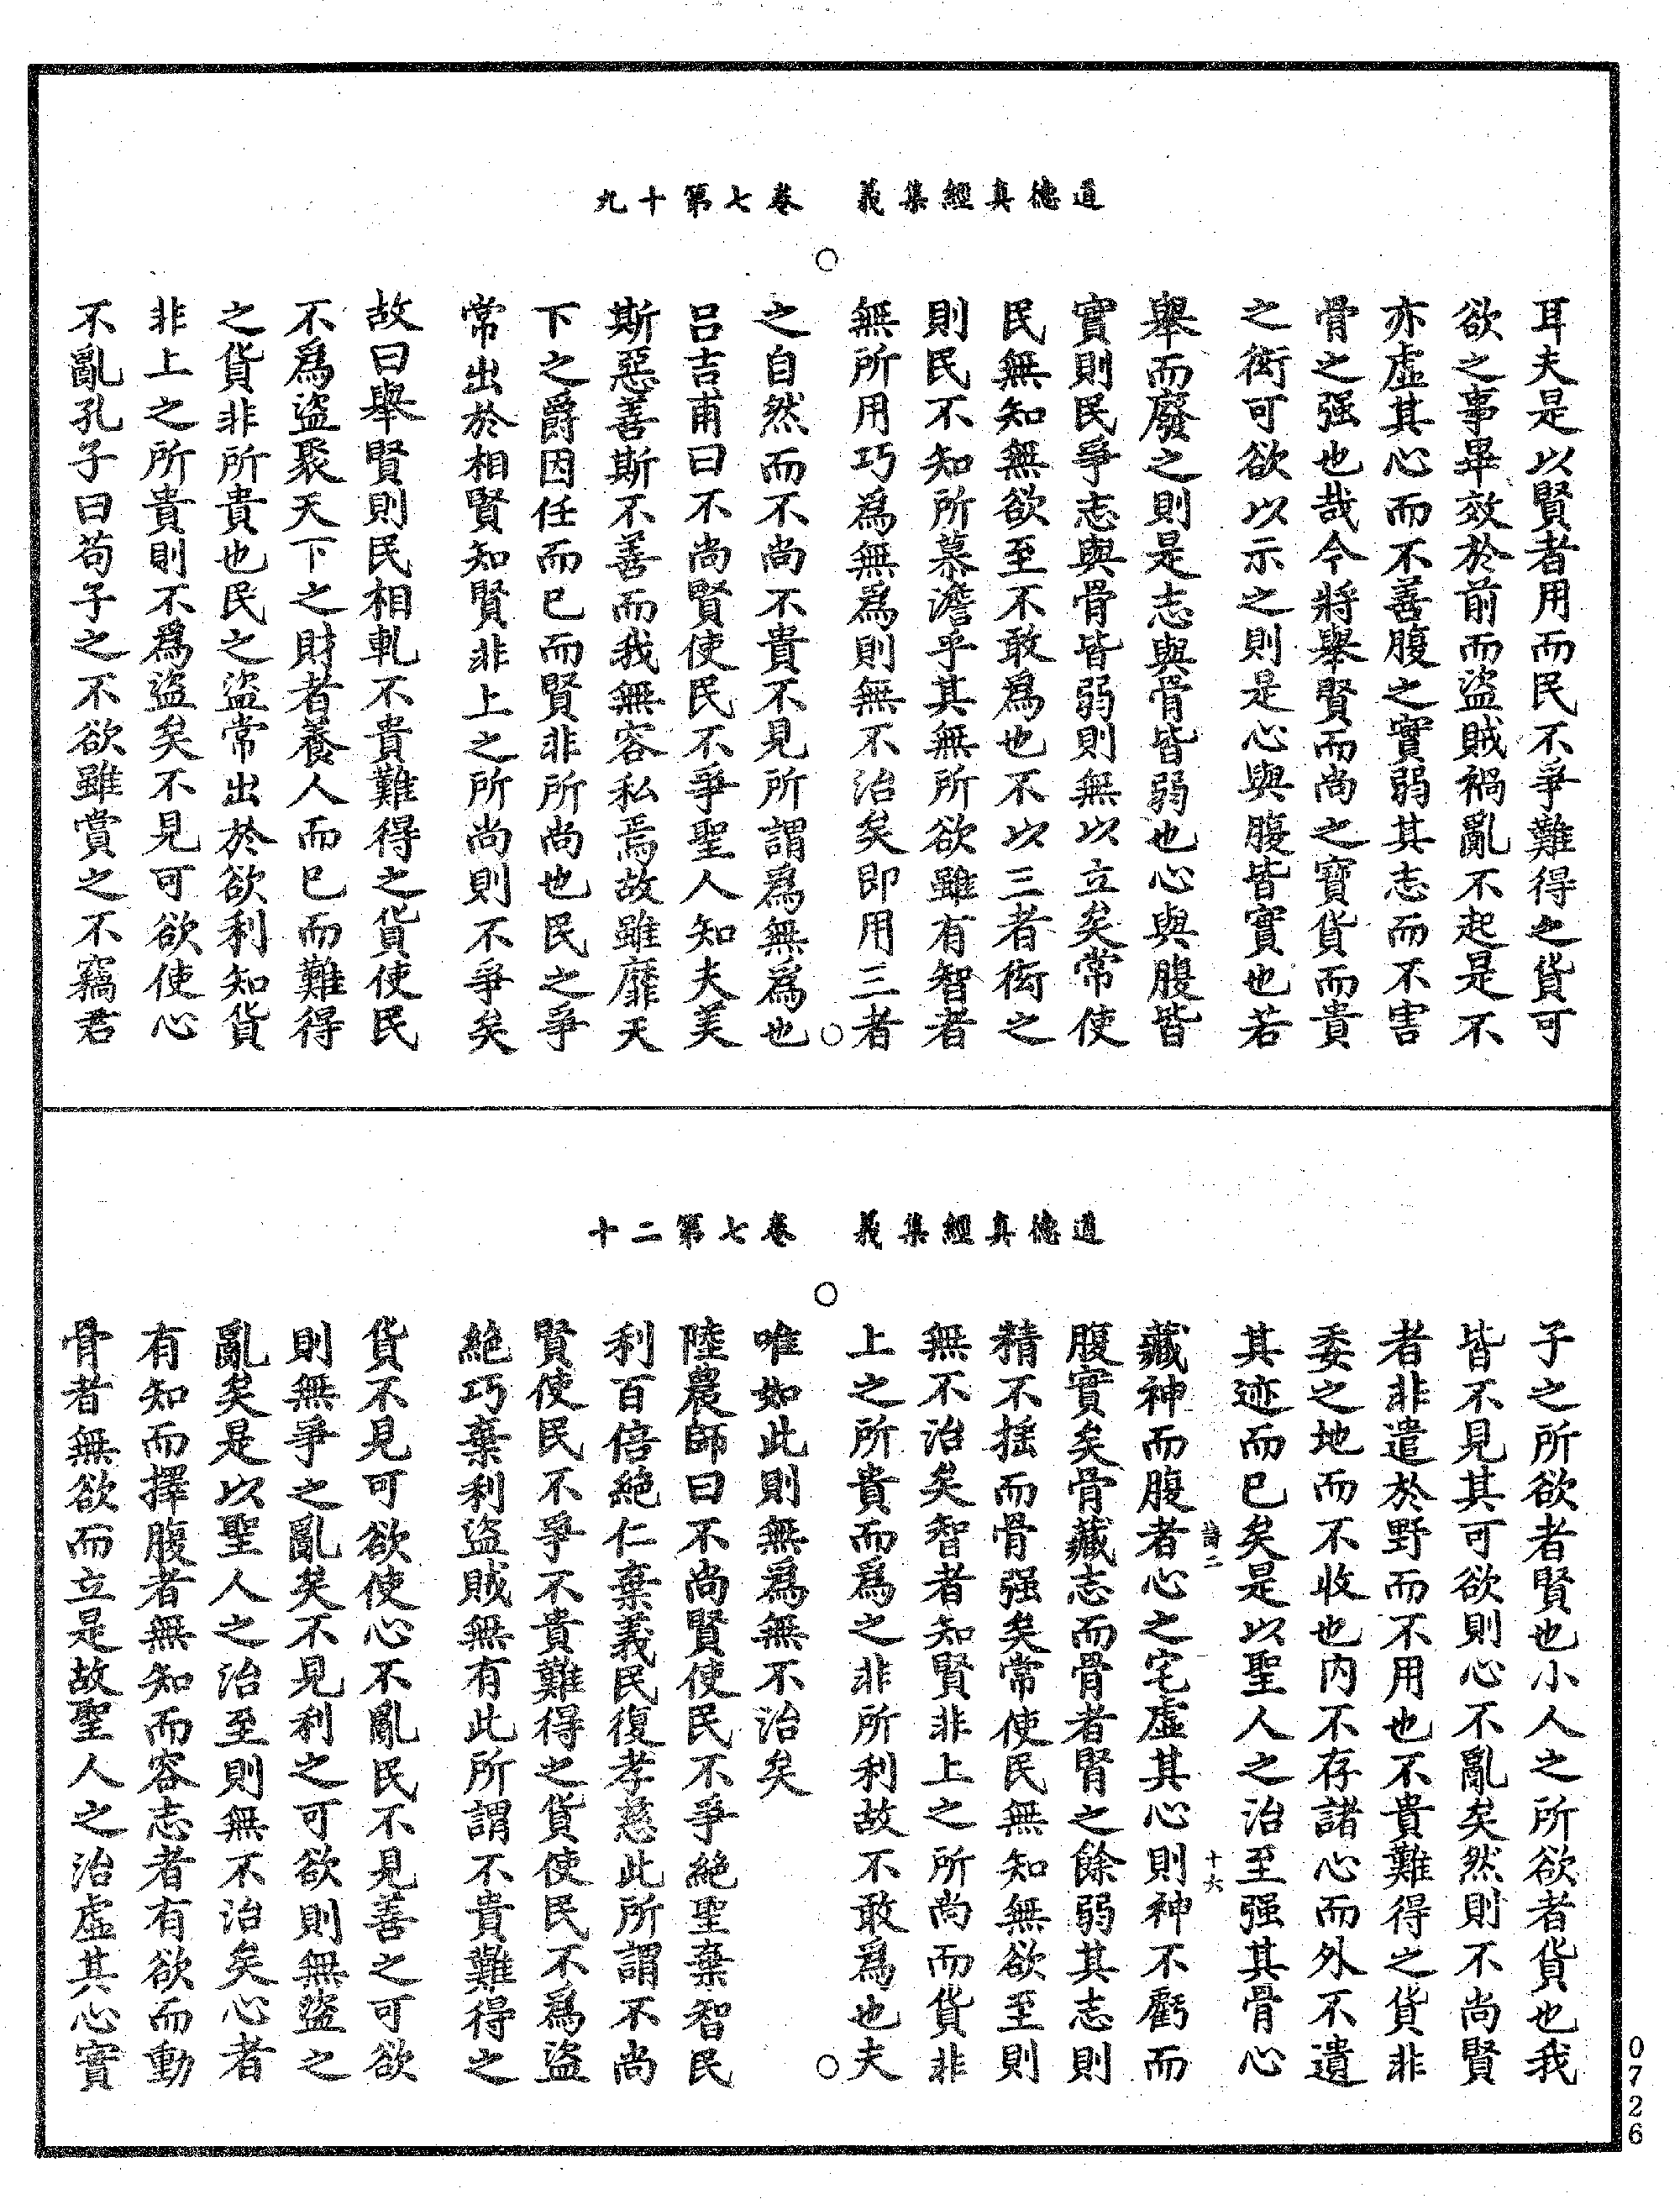 道德真經集義　卷七第十九
耳夫是以賢者用而民不爭難得之貨可
欲之事畢效於前而盜賊禍亂不起是不
亦虛其心而不善腹之實弱其志而不害
骨之强也哉今將舉賢而尚之寶貨而貴
之衒可欲以示之則是心與腹皆實也若
舉而廢之則是志與骨皆弱也心與腹皆
實則民爭志與骨皆弱則無以立矣常使
民無知無欲至不敢爲也不以三者衒之
則民不知所慕澹乎其無所欲雖有智者
無所用巧爲無爲則無不治矣即用三者
之自然而不尚不貴不見所謂爲無爲也
呂吉甫曰不尚賢使民不爭聖人知夫美
斯惡善斯不善而我無容私焉故雖靡天
下之爵因任而已而賢非所尚也民之爭
常出於相賢知賢非上之所尚則不爭矣
故曰舉賢則民相軋不貴難得之貨使民
不爲盜聚天下之財者養人而已而難得
之貨非所貴也民之盜常出於欲利知貨
非上之所貴則不爲盜矣不見可欲使心
不亂孔子曰苟子之不欲雖賞之不竊君
道德真經集義　卷七第二十
子之所欲者賢也小人之所欲者貨也我
皆不見其可欲則心不亂矣然則不尚賢
者非遣於野而不用也不貴難得之貨非
委之地而不收也内不存諸心而外不遺
其迹而已矣是以聖人之治至强其骨心
詩二　十六
藏神而腹者心之宅虛其心則神不虧而
腹實矣骨藏志而骨者腎之餘弱其志則
精不搖而骨强矣常使民無知無欲至則
無不治矣智者知賢非上之所尚而貨非
上之所貴而爲之非所利故不敢爲也夫
唯如此則無爲無不治矣
陸農師曰不尚賢使民不爭絕聖棄智民
利百倍絕仁棄義民復孝慈此所謂不尚
賢使民不爭不貴難得之貨使民不爲盜
絕巧棄利盜賊無有此所謂不貴難得之
貨不見可欲使心不亂民不見善之可欲
則無爭之亂矣不見利之可欲則無盜之
亂矣是以聖人之治至則無不治矣心者
有知而擇腹者無知而容志者有欲而動
骨者無欲而立是故聖人之治虛其心實
0726